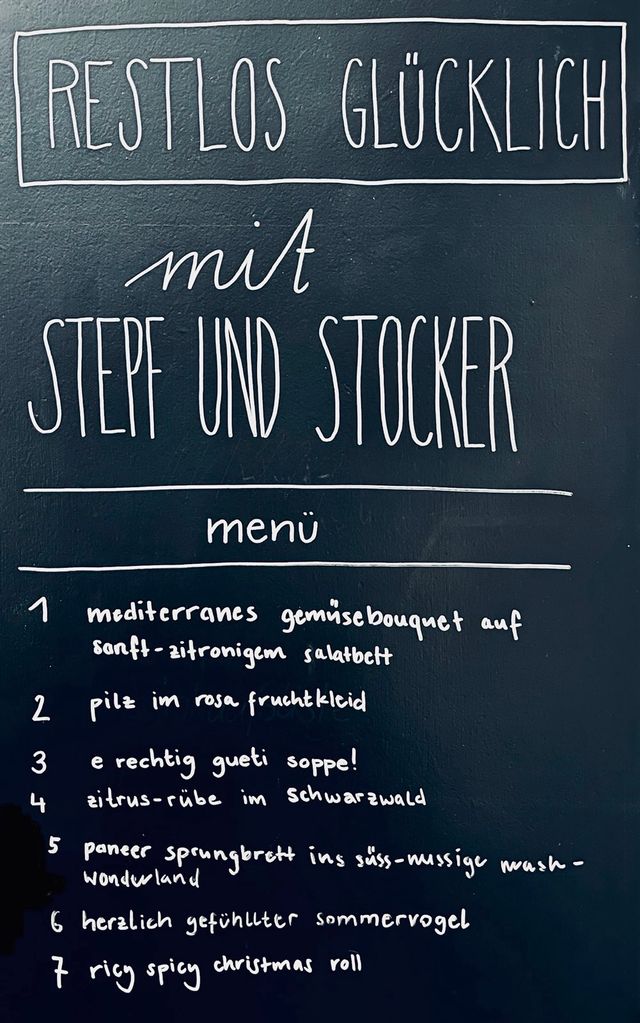 RESTLOS GLÜCKLICH
mit
STEPF UND STOCKER
menü
1 mediterranes gemüsebouquet auf
sanft-zitronigem salatbett
2 pilz im rosa fruchtkleid
3 e rechtig gueti soppe!
4 zitrus-rübe im schwarzwald
5 paneer sprungbrett ins süss-nussige mash-
wonderland
6 herzlich gefühllter sommervogel
7 ricy spicy christmas roll